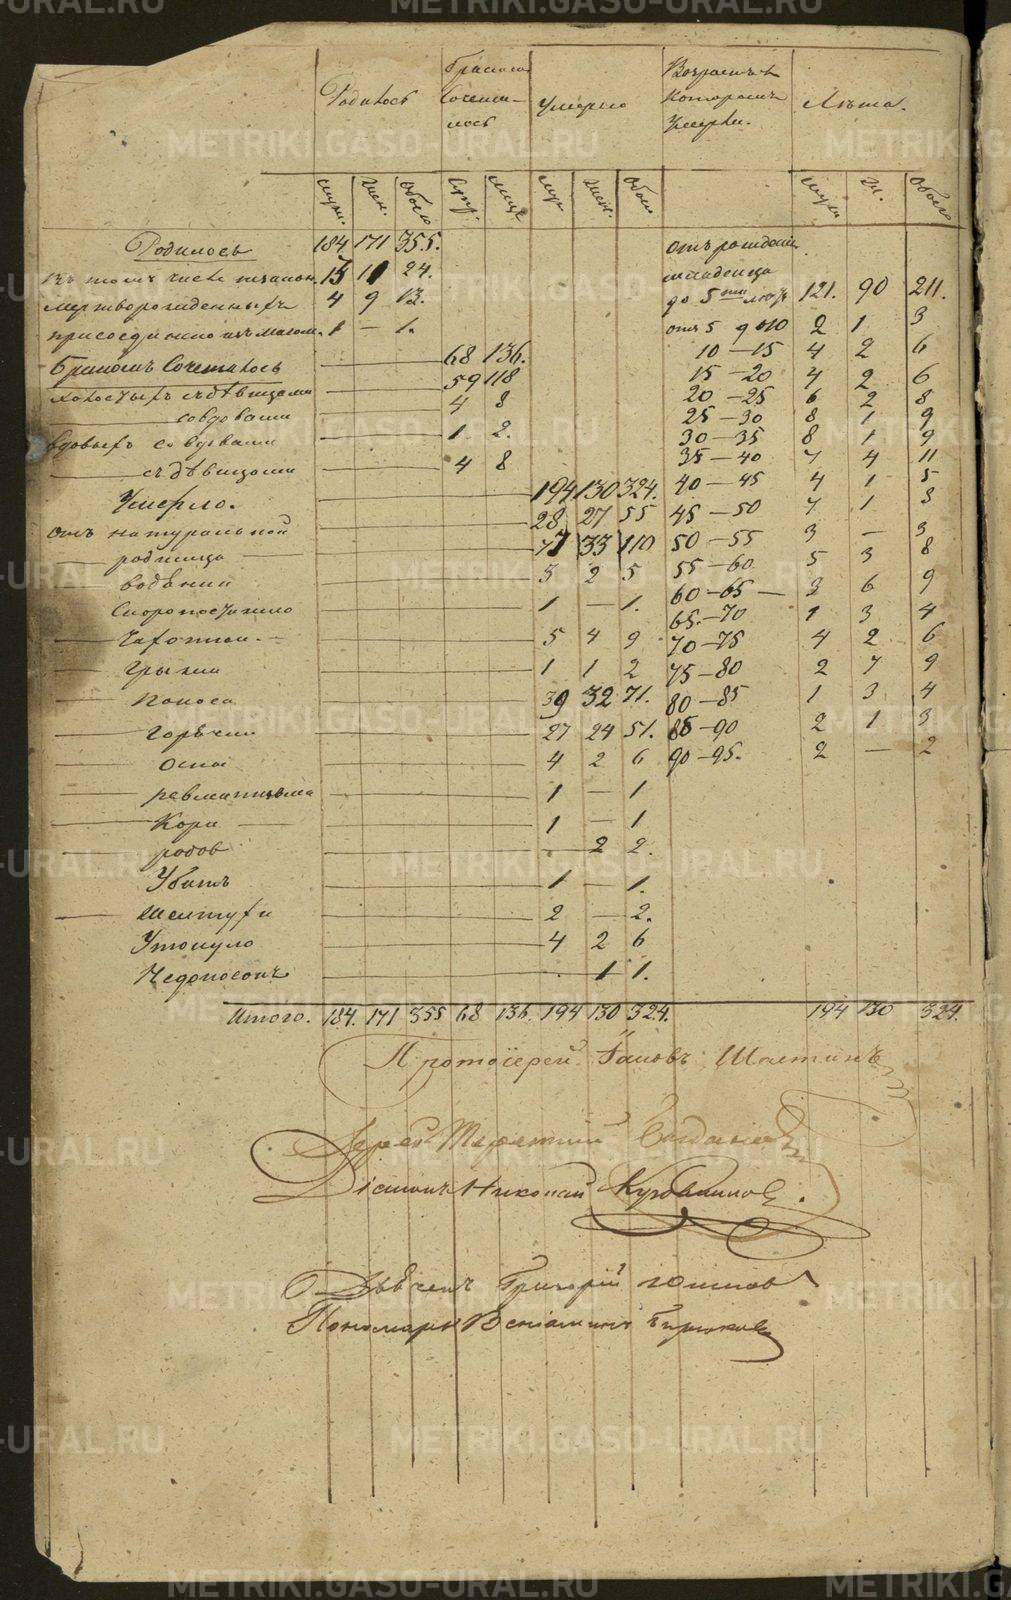 Родилось
Бракомъ
Сочета-
лось
Умерло
Возрастъ въ
которомъ
умерли.
Лѣта.
муж. жен. обоего
супр. лицъ
муж. жен. обоего
муж. ж. обоего
Родилось 184. 171 355.
въ томъ числѣ незакон. 13 11 24.
мертворожденныхъ 4 9 13.
присоединено изъ 1 — 1.
Бракомъ Сочеталось 68 136.
холостыхъ съ дѣвицами 59 118
со вдовами 4 8
вдовыхъ со вдовами 1 2.
съ дѣвицами 4 8
Умерло. 194 130 324.
отъ натуральной 28 27 55
родимца 77 33 110
водяной 3 2 5
Скоропостижно 1 — 1.
Чахотки 5 4 9
грыжи 1 1 2
Поноса 39 32 71.
горячки 27 24 51.
Оспы 4 2 6
ревматизма 1 — 1
Кори 1 — 1
родов 2 2.
Убитъ 1 — 1.
2 — 2.
Утонуло 4 2 6
Недоносокъ 1 1.
отъ рожденія
младенца
до 5ти лѣтъ 121. 90 211.
отъ 5 до 10 2 1 3
10 — 15 4 2 6
15 — 20 4 2 6
20 — 25 6 2 8
25 — 30 8 1 9
30 — 35 8 1 9
35 — 40 7 4 11
40 — 45 4 1 5
45 — 50 7 1 8
50 — 55 3 — 3
55 — 60 5 3 8
60 — 65 3 6 9
65. — 70 1 3 4
70 — 75 4 2 6
75 — 80 2 7 9
80 — 85 1 3 4
85 — 90 2 1 3
90 — 95. 2 — 2
Итого. 184. 171 355 68 136. 194 130 324. 194 130 324.
Протоіерей Іаковъ
Іерей Терентій
Діаконъ Николай
Григорій
Пономарь Веніаминъ Бирюковъ
METRIKI.GASO-URAL.RU